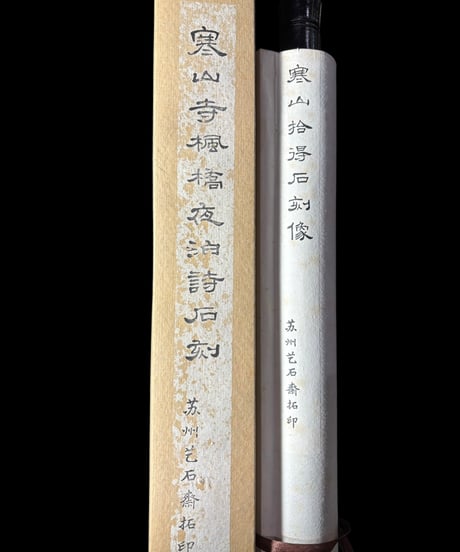 寒山寺楓橋夜泊詩石刻
苏州艺石齋拓印
寒山拾得石刻像
苏州艺石齋拓印